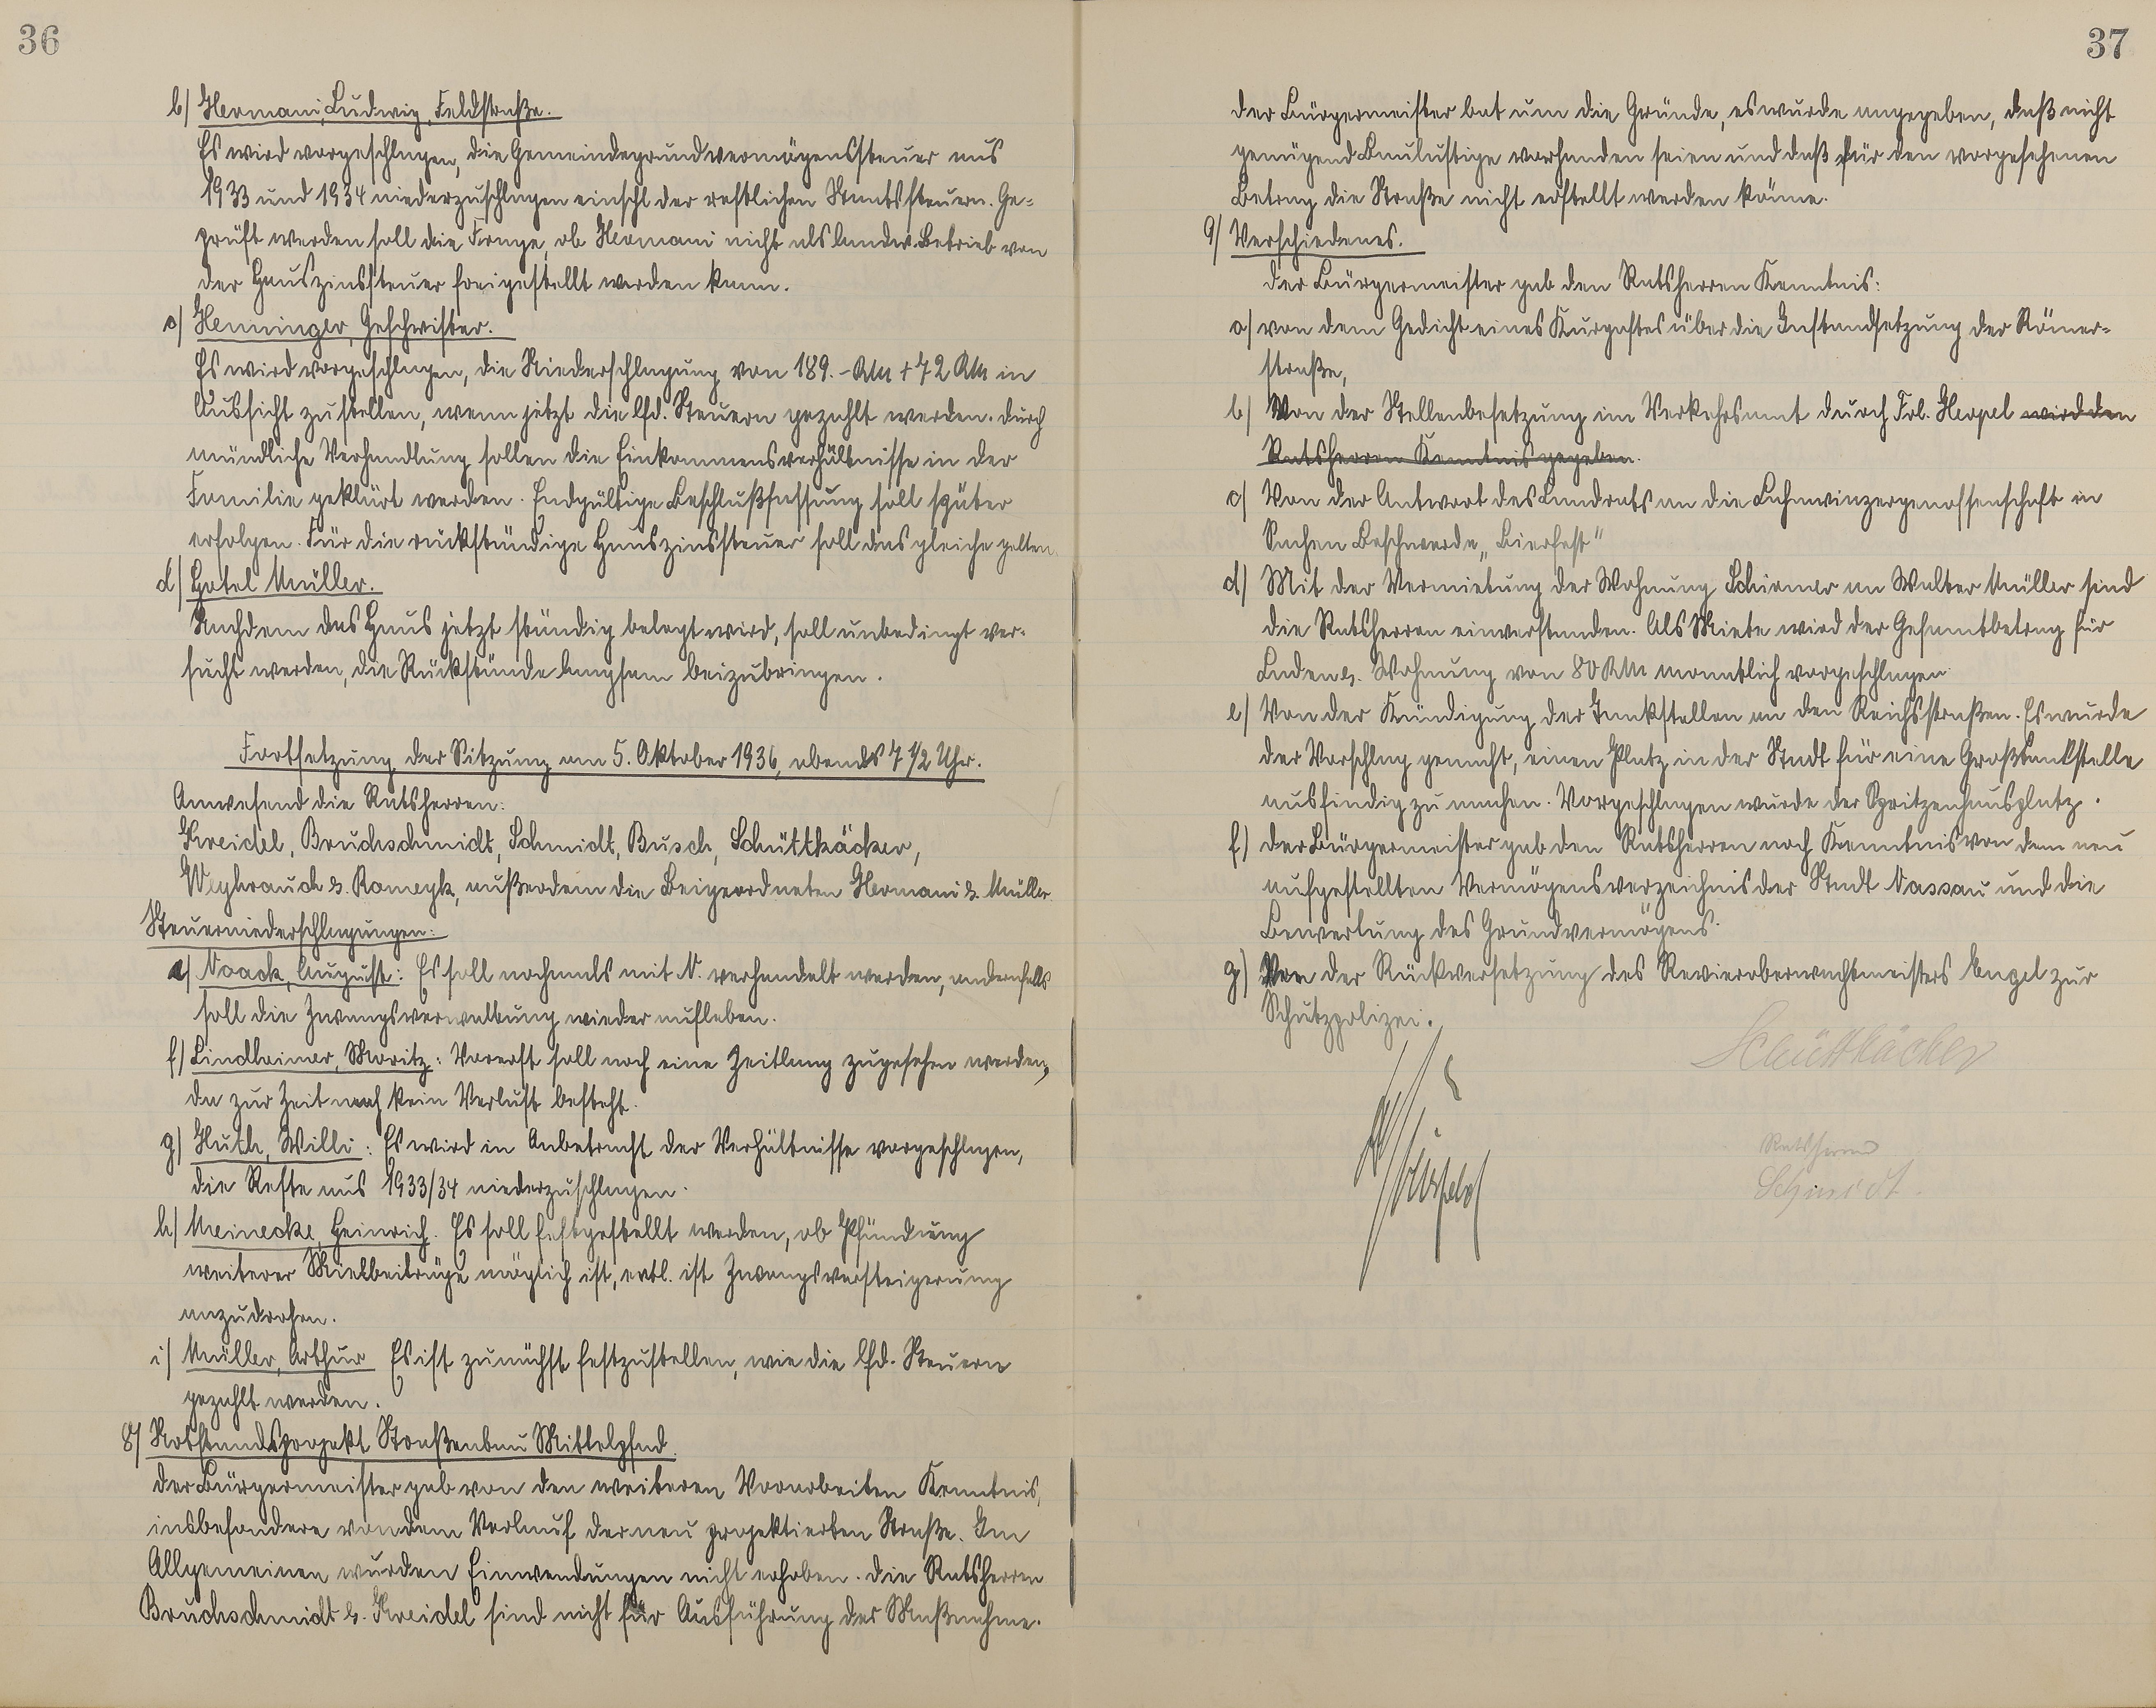 36
b) Hermani, Ludwig, Feldstraße.
Es wird vorgeschlagen, die Gemeindegrundvermögenssteuer aus
1933 und 1934 niederzuschlagen einschl der restlichen Staatssteuern. Ge-
prüft werden soll die Frage, ob Hermani nicht als landw. Betrieb von
der Hauszinssteuer freigestellt werden kann.
c) Henninger, Geschwister.
Es wird vorgeschlagen, die Niederschlagung von 189.- RM + 72 RM in
Aussicht zu stellen, wenn jetzt die lfd. Steuern gezahlt werden. Durch
mündliche Verhandlung sollen die Einkommensverhältnisse in der
Familie geklärt werden. Endgültige Beschlußfassung soll später
erfolgen. Für die rückständige Hauszinssteuer soll das gleiche gelten.
d) Hotel Müller.
Nachdem das Haus jetzt ständig belegt wird, soll unbedingt ver-
sucht werden, die Rückstände langsam beizubringen.
Fortsetzung der Sitzung am 5. Oktober 1936, abends 7 1/2 Uhr.
Anwesend die Ratsherren:
Kreidel, Bruchschmidt, Schmidt, Busch, Schüttkäcker,
Weyhrauch & Romeyk, außerdem die Beigeordneten Hermani & Müller.
Steuerniederschlagungen:
e) Noack, August: Es soll nochmals mit N. verhandelt werden, andernfalls
soll die Zwangsverwaltung wieder aufleben.
f) Lindheimer, Moritz: Vorerst soll noch eine Zeitlang zugesehen werden,
da zur Zeit noch kein Verlust besteht.
g) Huth, Willi: Es wird in Anbetracht der Verhältnisse vorgeschlagen,
die Reste aus 1933/34 niederzuschlagen.
h) Meinecke, Heinrich. Es soll festgestellt werden, ob Pfändung
weiterer Mietbeiträge möglich ist, evtl. ist Zwangsversteigerung
anzudrohen.
i) Müller, Arthur Es ist zunächst festzustellen, wie die lfd. Steuern
gezahlt werden.
8) Notstandsprojekt Straßenbau Mittelpfad.
Der Bürgermeister gab von den weiteren Vorarbeiten Kenntnis,
insbesondere von dem Verlauf der neu projektierten Straße. Im
Allgemeinen wurden Einwendungen nicht erhoben. Die Ratsherren
Bruchschmidt & Kreidel sind nicht für Ausführung der Maßnahme.
37
Der Bürgermeister bat um die Gründe, es wurde angegeben, daß nicht
genügend Baulustige vorhanden seien und daß für den vorgesehenen
Betrag die Straße nicht erstellt werden könne.
9) Verschiedenes.
Der Bürgermeister gab den Ratsherren Kenntnis:
a) von dem Gedicht eines Kurgastes über die Instandsetzung der Römer-
straße,
b) Von der Stellenbesetzung im Verkehrsamt durch Frl. Herpel wird den
Ratsherren Kenntnis gegeben.
c) Von der Antwort des Landrats an die Lahnwinzergenossenschaft in
Sachen Beschwerde „Bierfest"
d) Mit der Vermietung der Wohnung Schirmer an Walter Müller sind
die Ratsherren einverstanden. Als Miete wird der Gesamtbetrag für
Laden & Wohnung von 80 RM monatlich vorgeschlagen
e) Von der Kündigung der Tankstellen an den Reichsstraßen. Es wurde
der Vorschlag gemacht, einen Platz in der Stadt für eine Großtankstelle
ausfindig zu machen. Vorgeschlagen wurde der Spritzenhausplatz.
f) Der Bürgermeister gab den Ratsherren noch Kenntnis von dem neu
aufgestellten Vermögensverzeichnis der Stadt Nassau und die
Bewertung des Grundvermögens.
g) Von der Rückversetzung des Revieroberwachtmeisters Engel zur
Schutzpolizei.
Schüttkäcker
Ratsherren
Schmidt.